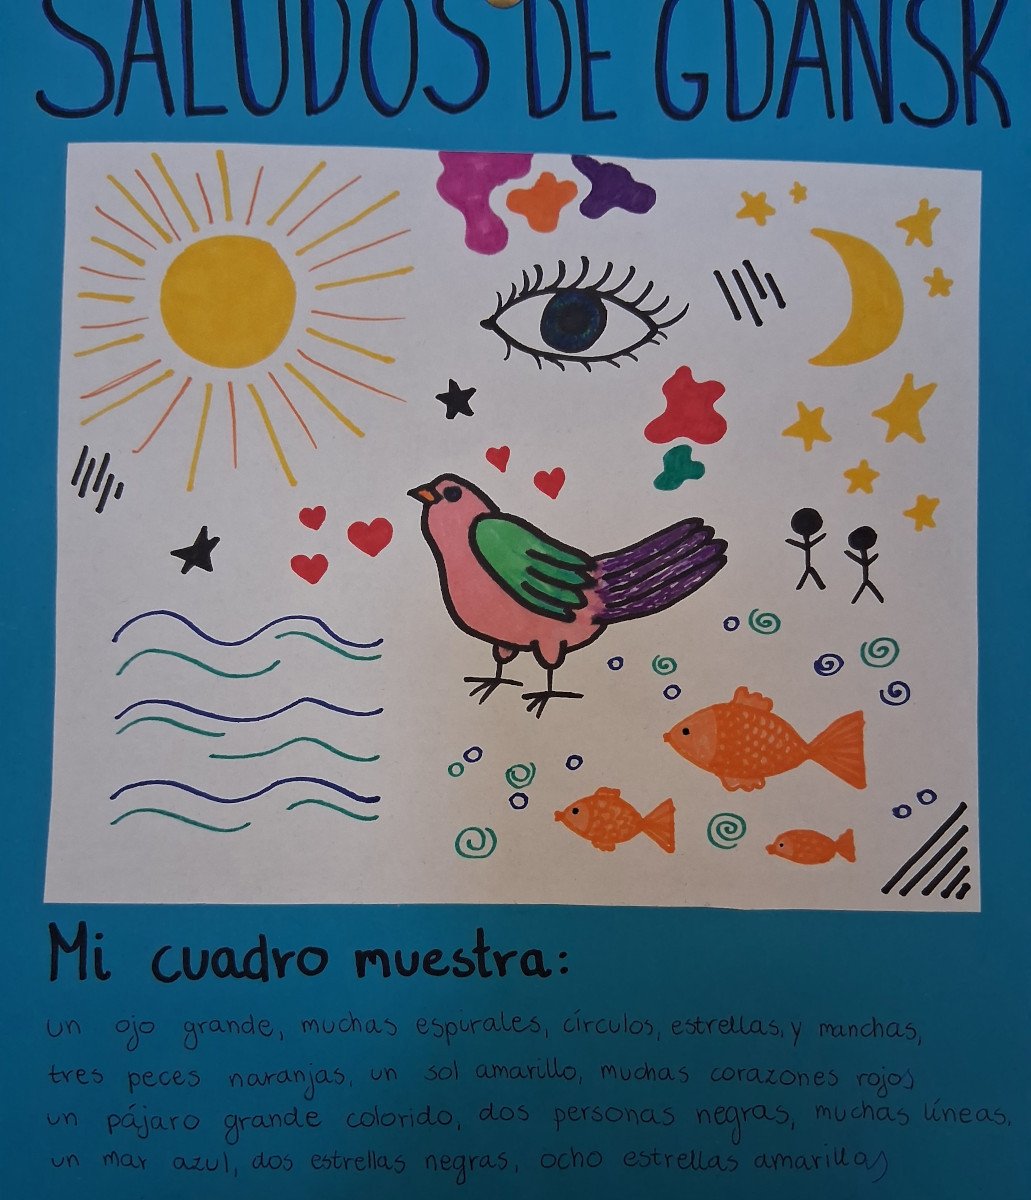 SALUDOS DE GDANSK
Mi cuadro muestra:
un ojo grande, muchas espirales, círculos, estrellas, y manchas,
tres peces naranjas, un sol amarillo, muchas corazones rojos
un pájaro grande colorido, dos personas negras, muchas líneas,
un mar azul, dos estrellas negras, ocho estrellas amarillas